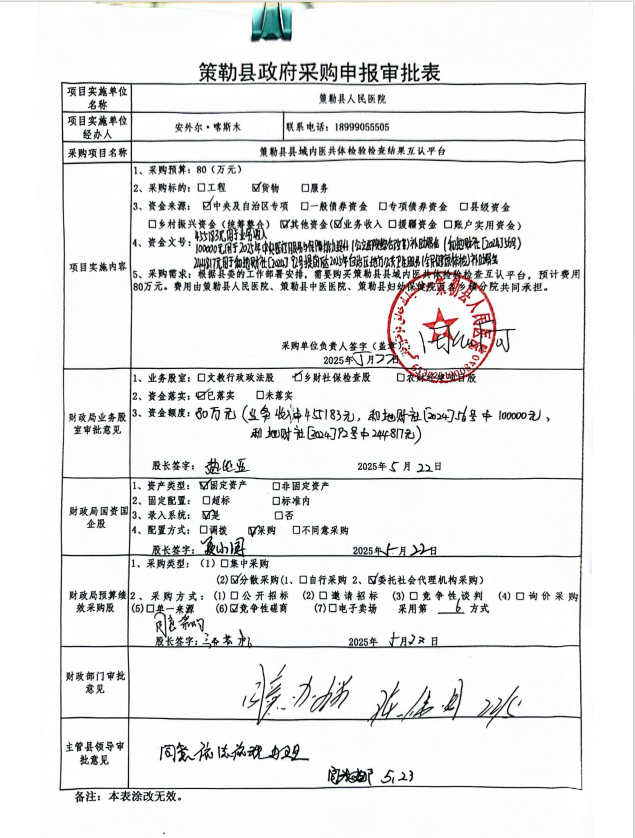 策勒县政府采购申报审批表
项目实施单位名称 策勒县人民医院
项目实施单位经办人 安外尔·喀斯木 联系电话：18999055505
采购项目名称 策勒县县域内医共体检验检查结果互认平台
项目实施内容
1、采购预算：80（万元）
2、采购标的：□工程 ☑货物 □服务
3、资金来源：☑中央及自治区专项 □一般债券资金 □专项债券资金 □县级资金
□乡村振兴资金（统筹整合） ☑其他资金（☑业务收入 □援疆资金 □账户实用资金）
4、资金文号：455183元用于业务收入
100000元用于2025年中央医疗服务与保障能力提升（公立医院综合改革）补助资金（和地财社[2024]56号）
244817元用于和地财社[2024]92号
5、采购需求：根据县委的工作部署安排，需要购买策勒县县域内医共体检验检查互认平台，预计费用
80万元。费用由策勒县人民医院、策勒县中医医院、策勒县妇幼保健院及各乡镇分院共同承担。
采购单位负责人签字（盖章）
2025年5月22日
策勒县人民医院
财政局业务股室审批意见
1、业务股室：□文教行政政法股 ☑乡财社保检查股 □农财经建项目股
2、资金落实：☑已落实 □未落实
3、资金额度：80万元（业务收入中455183元，和地财社[2024]56号中100000元，
和地财社[2024]92号中244817元）
股长签字： 2025年5月22日
财政局国资国企股
1、资产类型：☑固定资产 □非固定资产
2、固定配置：□超标 □标准内
3、录入系统：☑是 □否
4、配置方式：□调拨 ☑采购 □不同意采购
股长签字： 2025年5月22日
财政局预算绩效采购股
1、采购类型：（1）□集中采购
（2）☑分散采购（1、□自行采购 2、☑委托社会代理机构采购）
2、采购方式：（1）□公开招标 （2）□邀请招标 （3）□竞争性谈判 （4）□询价采购
（5）□单一来源 （6）☑竞争性磋商 （7）□电子卖场 采用第 6 方式
同意采购
股长签字： 2025年5月22日
财政部门审批意见
同意办 22/5
主管县领导审批意见
同意依法依规办理
5.23
备注：本表涂改无效。